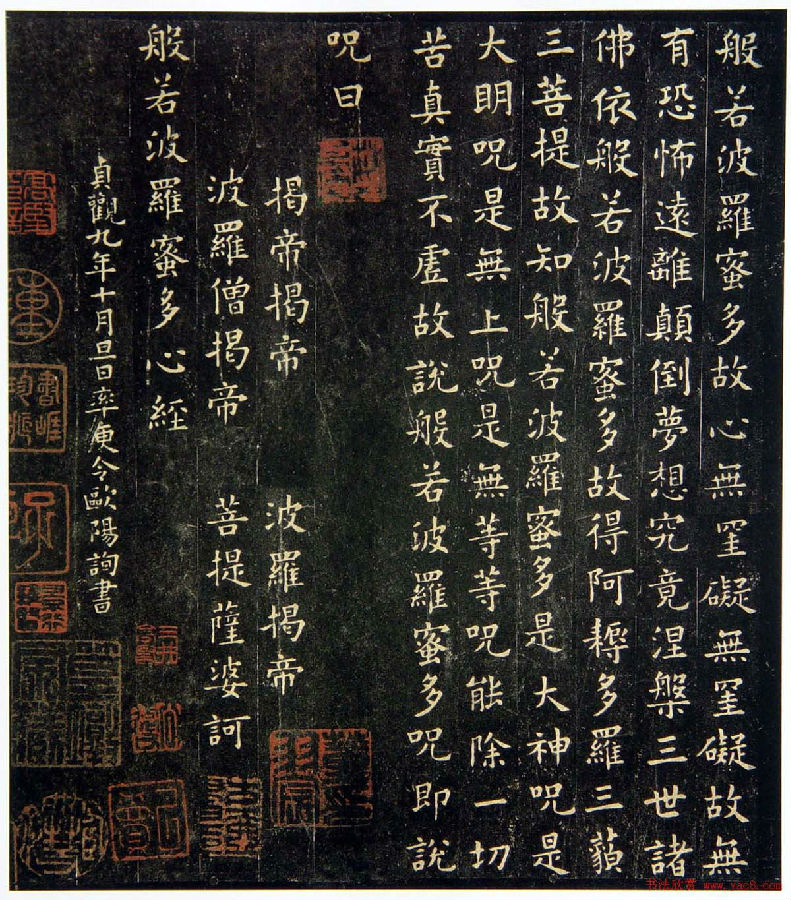 般若波羅蜜多故心無罣礙無罣礙故無
有恐怖遠離顛倒夢想究竟涅槃三世諸
佛依般若波羅蜜多故得阿耨多羅三藐
三菩提故知般若波羅蜜多是大神呪是
大明呪是無上呪是無等等呪能除一切
苦真實不虛故說般若波羅蜜多呪即說
呪曰
揭帝揭帝 波羅揭帝
波羅僧揭帝 菩提薩婆訶
般若波羅蜜多心經
貞觀九年十月旦日率更令歐陽詢書
书法欣赏 www.yac8.com